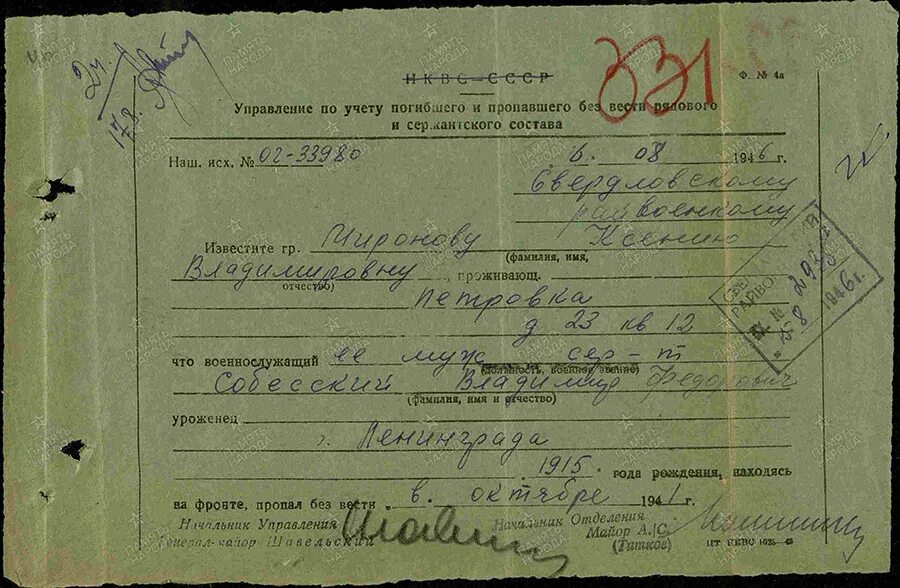 331
НКВС–СССР
Ф. № 4а
Управление по учету погибшего и пропавшего без вести рядового
и сержантского состава
Наш. исх. № 02-33980
6. 08 1946 г.
Свердловскому
райвоенкому
Известите гр. Миронову Ксению
(фамилия, имя,
Владимировну, проживающ.
отчество)
Петровка
д 23 кв 12
что военнослужащий ее муж сер-т
(должность, военное звание)
Собесский Владимир Федорович
(фамилия, имя и отчество)
уроженец
г. Ленинграда
1915. года рождения, находясь
на фронте, пропал без вести в октябре 1941 г.
Начальник Управления
Генерал-майор Шавельский
Начальник Отделения
Майор А/С
(Титков)